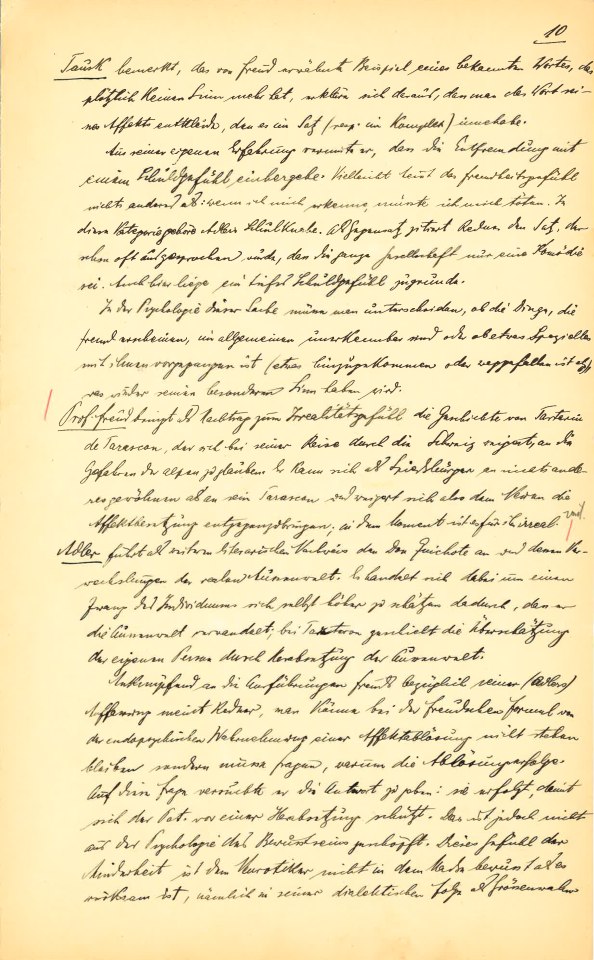 10
Tausk bemerkt, das von Freud erwähnte Beispiel eines bekannten Wortes, das
plötzlich keinen Sinn mehr hat, erkläre sich daraus, dass man das Wort sei-
nes Affekts entkleide, den es im Satz (resp. im Komplex) innehabe.
Aus seiner eigenen Erfahrung vermute er, dass die Entfremdung mit
einem Schuldgefühl einhergehe. Vielleicht heisst das Fremdheitsgefühl
nichts anderes als: wenn ich mich erkenne, müsste ich mich töten. In
diese Kategorie gehöre Adlers Schulknabe. Als Gegensatz zitiert Redner den Satz, der
schon oft ausgesprochen wurde, dass die ganze Gesellschaft nur eine Komödie
sei. Auch hier liege ein tiefes Schuldgefühl zugrunde.
In der Psychologie dieser Sache müsse man unterscheiden, ob die Dinge, die
fremd erscheinen, im allgemeinen unerkennbar sind oder ob etwas Spezielles
mit ihnen vorgegangen ist (etwas hinzugekommen oder weggefallen ist
was wieder seinen besonderen Sinn haben wird.
Prof. Freud bringt als Nachtrag zum Irrealitätsgefühl die Geschichte von Tartarin
de Tarascon, der sich bei seiner Reise durch die Schweiz weigert, an die
Gefahren der Alpen zu glauben. Er kann sich als Spiessbürger an nichts ande-
res gewöhnen als an sein Tarascon und weigert sich also dem Neuen die
Affektbesetzung entgegenzubringen; in dem Moment ist es für ihn irreal
Adler führt als weiteren literarischen Nachweis den Don Quichote an und dessen Ver-
wechslungen der realen Aussenwelt. Es handelt sich dabei um einen
Zwang des Individuums sich selbst höher zu schätzen dadurch, dass er
die Aussenwelt verwandelt; bei Tartarin geschieht die Überschätzung
der eigenen Person durch Herabsetzung der Aussenwelt.
Anknüpfend an die Ausführungen Freuds bezüglich seiner (Adlers)
Auffassung meint Redner, man könne bei der Freudschen Formel von
der endopsychischen Wahrnehmung einer Affektablösung nicht stehen
bleiben sondern müsse fragen, warum die Ablösung erfolge.
Auf diese Frage versuchte er die Antwort zu geben: sie erfolgt, damit
sich der Pat. vor einer Herabsetzung schützt. Das ist jedoch nicht
aus der Psychologie des Bewusstseins geschöpft. Dieses Gefühl der
Minderheit ist dem Neurotiker nicht in dem Masse bewusst als es
wirksam ist, nämlich in seiner dialektischen Folge als Grössenwahn